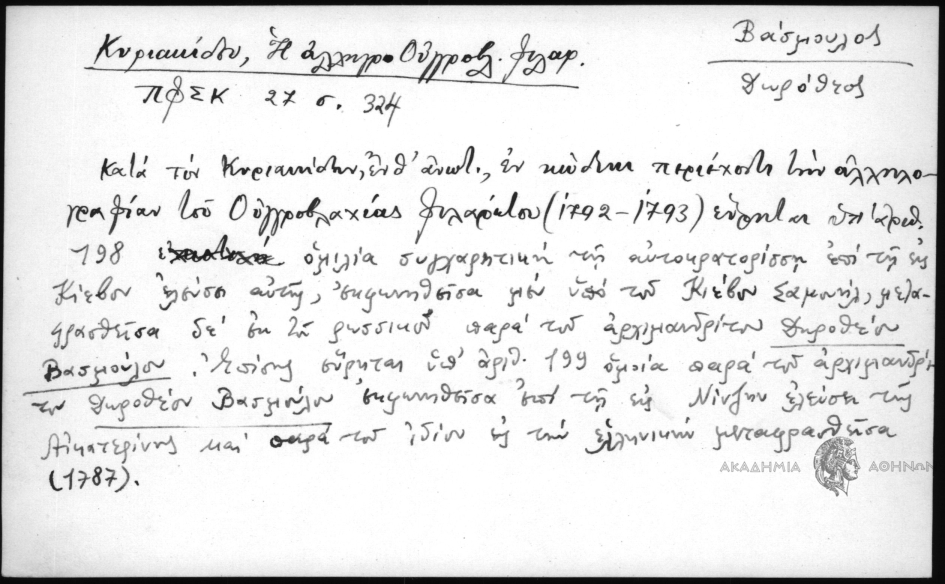 Βάσμουλος
Δωρόθεος
Κυριακίδου, Ἡ ἀλληγρο Οὑγγροβλ. Φιλαρ.
ΠΦΣΚ 27 σ. 324
Κατά τόν Κυριακίδην, ἔνθ' ἀνωτ., ἐν κώδικι περιέχοντι τήν ἀλληλο-
γραφίαν τοῦ Οὑγγροβλαχίας Φιλαρέτου (1792-1793) εὕρηται ὑπ' ἀριθ.
198 ὁμιλία συγχαρητική τῇ αὐτοκρατορίσσῃ ἐπί τῇ εἰς
Κίεβον ἐλεύσει αὐτῆς, ἐκφωνηθεῖσα μέν ὑπό τοῦ Κιέβου Σαμουήλ, μετα-
φρασθεῖσα δέ ἐκ τοῦ ρωσσικοῦ παρά τοῦ ἀρχιμανδρίτου Δωροθέου
Βασμούλου. Ἐπίσης εὕρηται ὑπ' ἀριθ. 199 ὁμοία παρά τοῦ ἀρχιμανδρί-
του Δωροθέου Βασμούλου ἐκφωνηθεῖσα ἐπί τῇ εἰς Νίνζην ἐλεύσει τῆς
Αἰκατερίνης καί παρά τοῦ ἰδίου εἰς τήν ἑλληνικήν μεταφρασθεῖσα
(1787).
ΑΚΑΔΗΜΙΑ ΑΘΗΝΩΝ